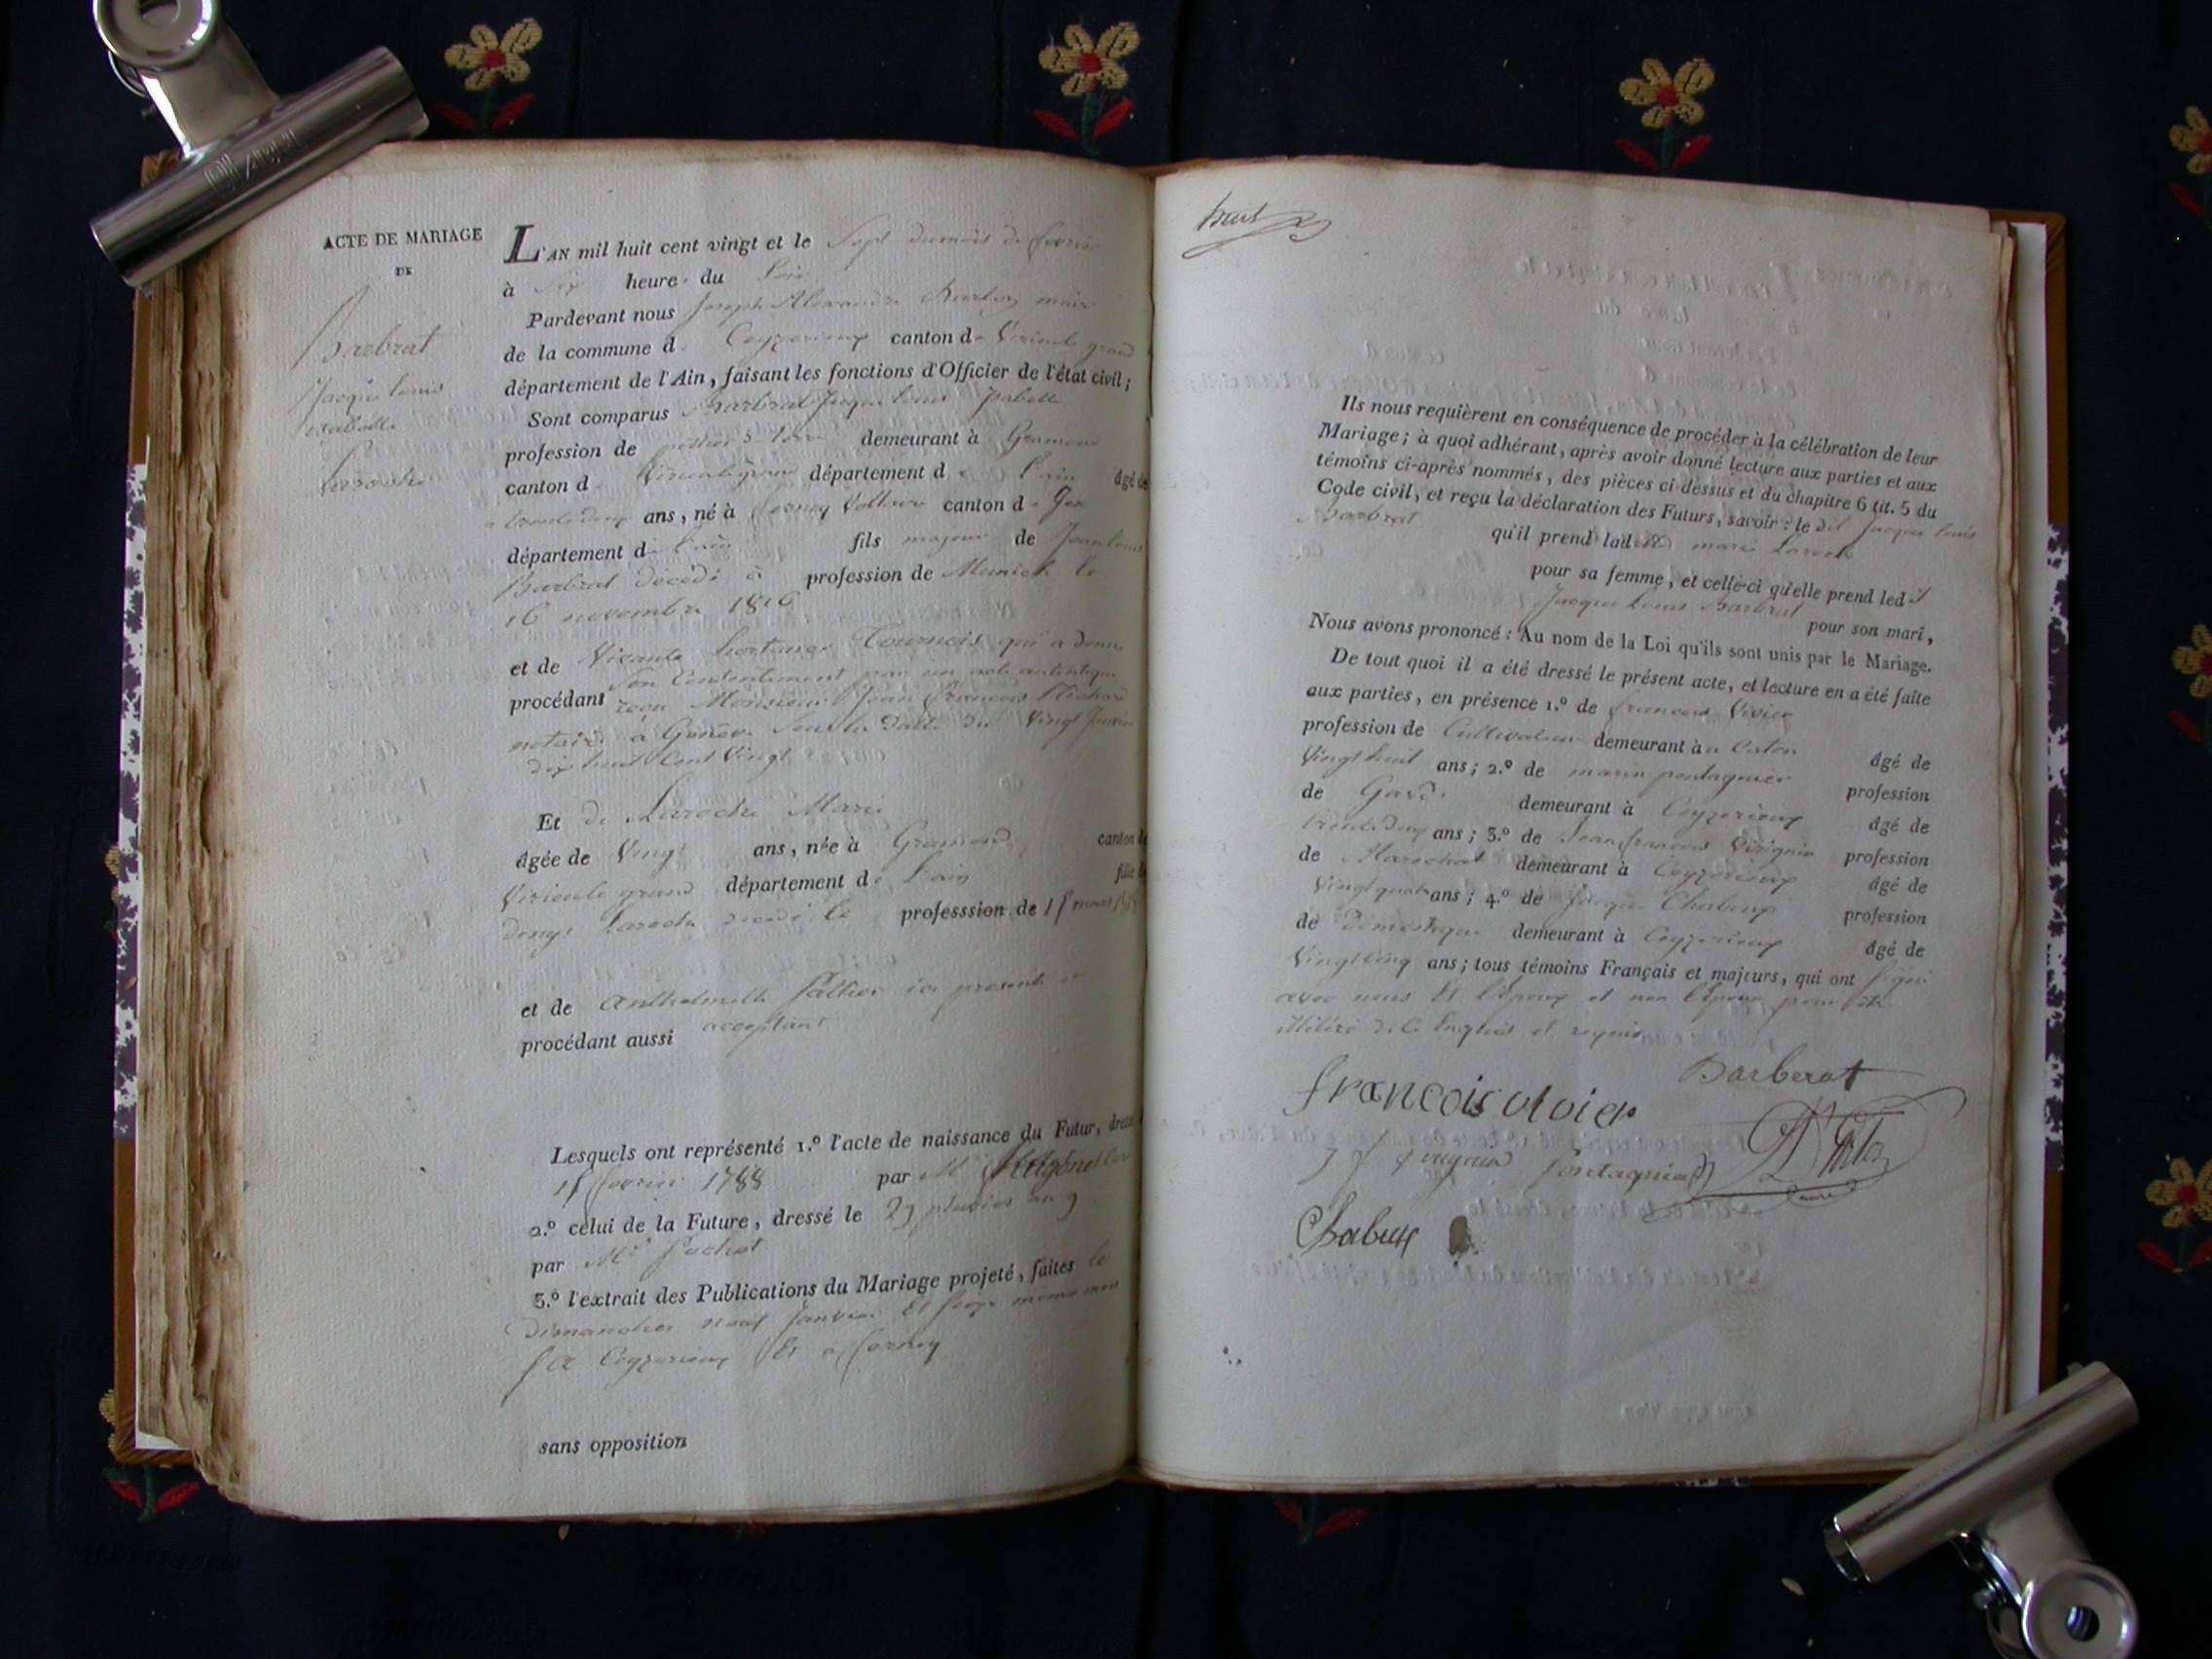 ACTE DE MARIAGE
DE
Barbrat
Jacque louis
isabelle
Laroche
L'AN mil huit cent vingt et le Sept du mois de fevrier
à Six heure du Soir
Pardevant nous Joseph Alexandre maire
de la commune d Ceyzerieux canton de Virieule grand
département de l'Ain, faisant les fonctions d'Officier de l'état civil;
Sont comparus Barbrat Jacque louis Isabelle
profession de potier de terre demeurant à Gramond
canton d Virieule grand département de l'ain âgé de
trente deux ans, né à ferney Voltaire canton de Gex
département de l'ain fils majeur de Jean louis
Barbrat décédé à profession de Munich le
16 novembre 1816
et de hortance Tournois qui a donné
son Consentement par un acte autentique
procédant reçu Monsieur Jean francois Richard
notaire à Genève Sous la date du Vingt Janvier
dix huit Cent Vingt
Et de Laroche Marie
âgée de Vingt ans, née à Gramond canton de
Virieule grand département de l'ain fille de
denys Laroche décédé le professsion de 15 mars
et de Anthelmette Pallier ici presente et
procédant aussi acceptant
Lesquels ont représenté 1.º l'acte de naissance du Futur, dressé
15 fevrier 1788 par Mr
2.º celui de la Future, dressé le 29 pluviose an 9
par Mr Pochet
3.º l'extrait des Publications du Mariage projeté, faites le
dimanches neuf Janvier Et Seize même mois
a Ceyzerieux Et a ferney
sans opposition
Ils nous requièrent en conséquence de procéder à la célébration de leur
Mariage; à quoi adhérant, après avoir donné lecture aux parties et aux
témoins ci-après nommés, des pièces ci-dessus et du chapitre 6 tit. 5 du
Code civil, et reçu la déclaration des Futurs, savoir: le dit Jacque louis
Barbrat qu'il prend lad marie Laroche
pour sa femme, et celle-ci qu'elle prend led t
Jacque louis Barbrat pour son mari,
Nous avons prononcé: Au nom de la Loi qu'ils sont unis par le Mariage.
De tout quoi il a été dressé le présent acte, et lecture en a été faite
aux parties, en présence 1.º de francois Vivier
profession de Cultivateur demeurant à âgé de
Vingt huit ans; 2.º de marin pontagnier profession
de Garde demeurant à Ceyzerieux âgé de
trente deux ans; 3.º de Jean francois Virignin profession
de Marechal demeurant à Ceyzerieux âgé de
Vingt quatre ans; 4.º de Jacque Chaboux profession
de domestique demeurant à Ceyzerieux âgé de
Vingt Cinq ans; tous témoins Français et majeurs, qui ont Signé
avec nous Et l'Epoux et non l'Epouse pour être
illitéré de Ce Enquis et requis
Barberat
francois vivier
J F Virignin Pontagnier
Chabux